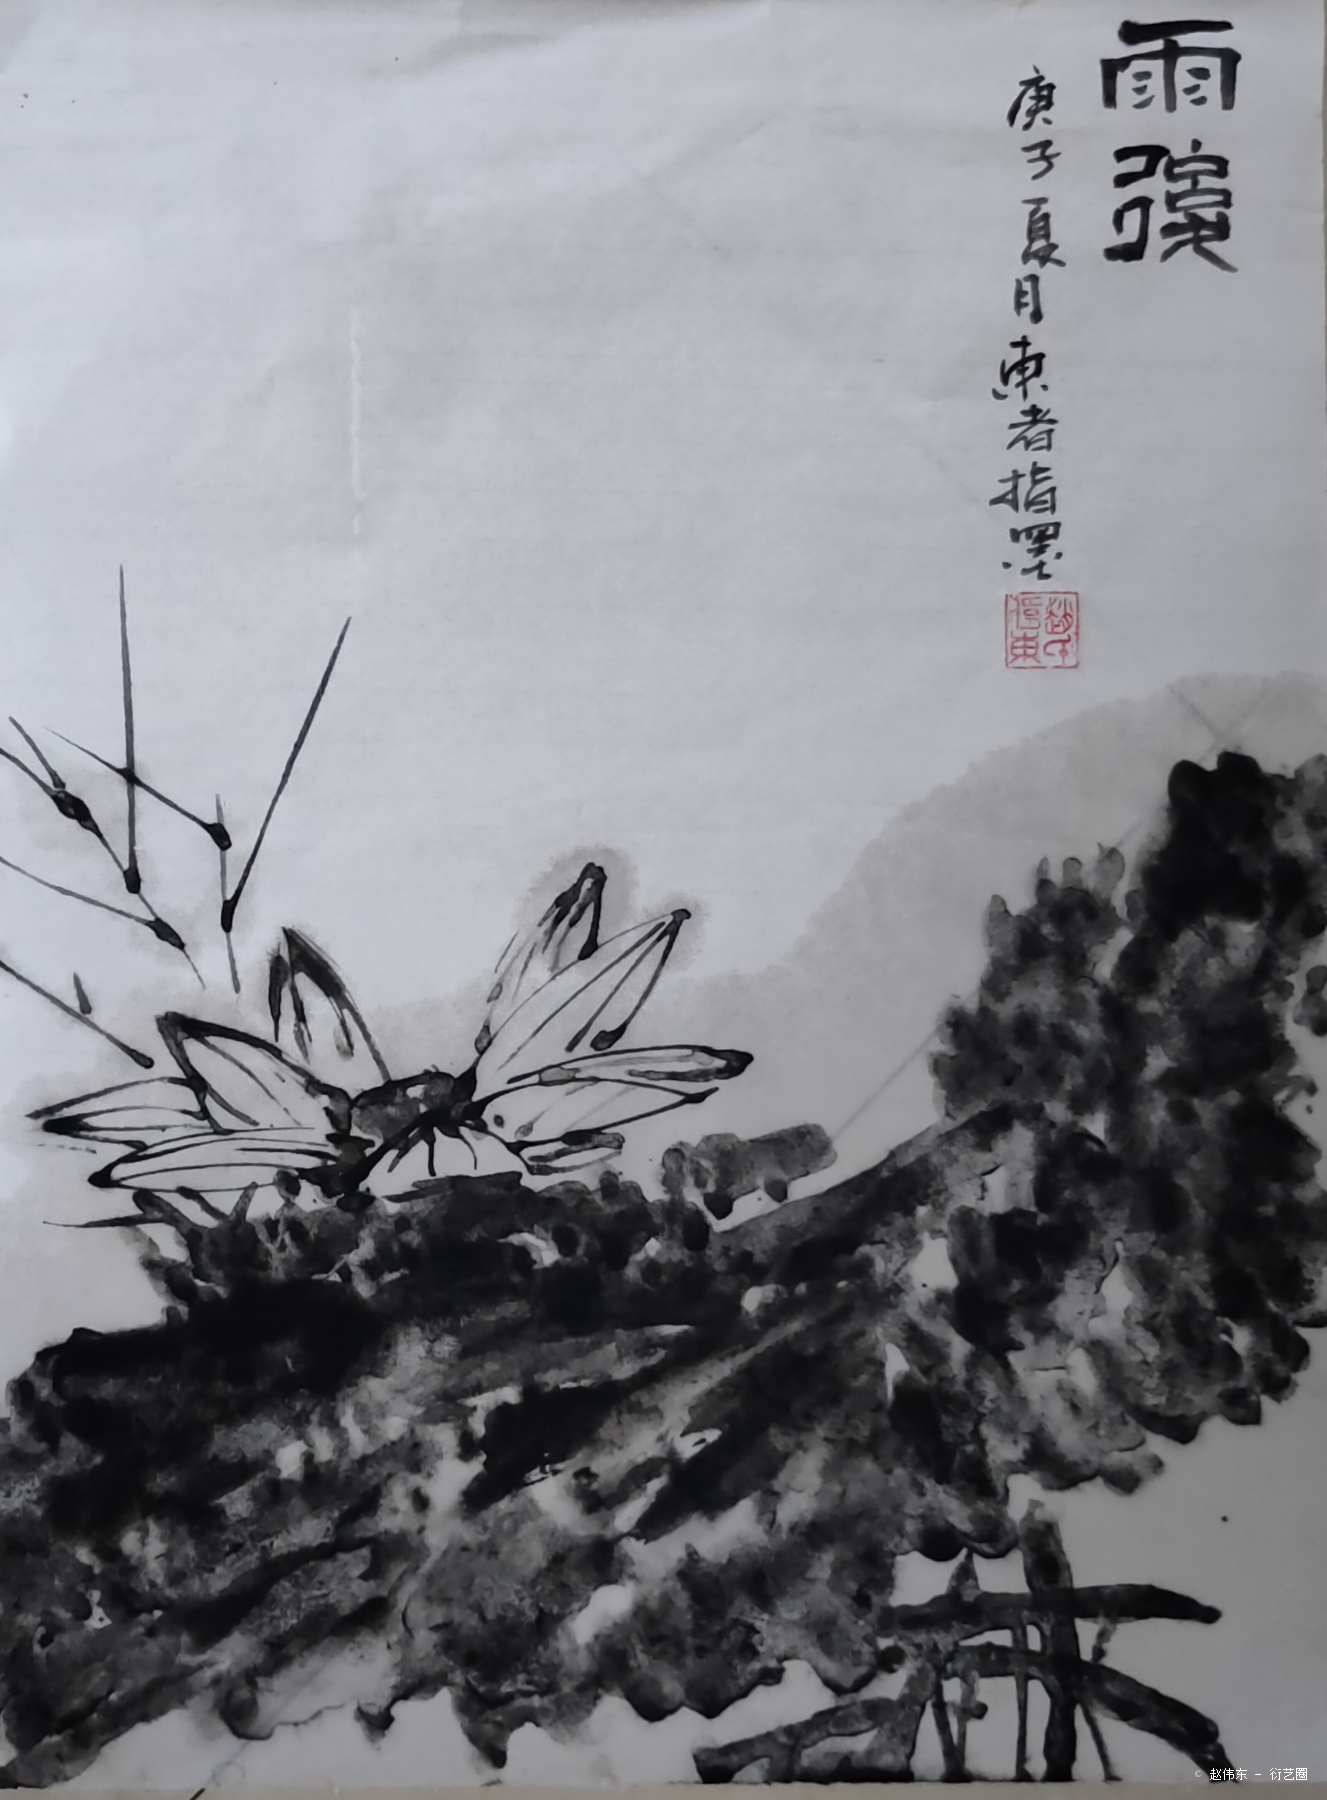 雨
庚子夏月東者指墨
© 赵伟东 - 衍艺圈